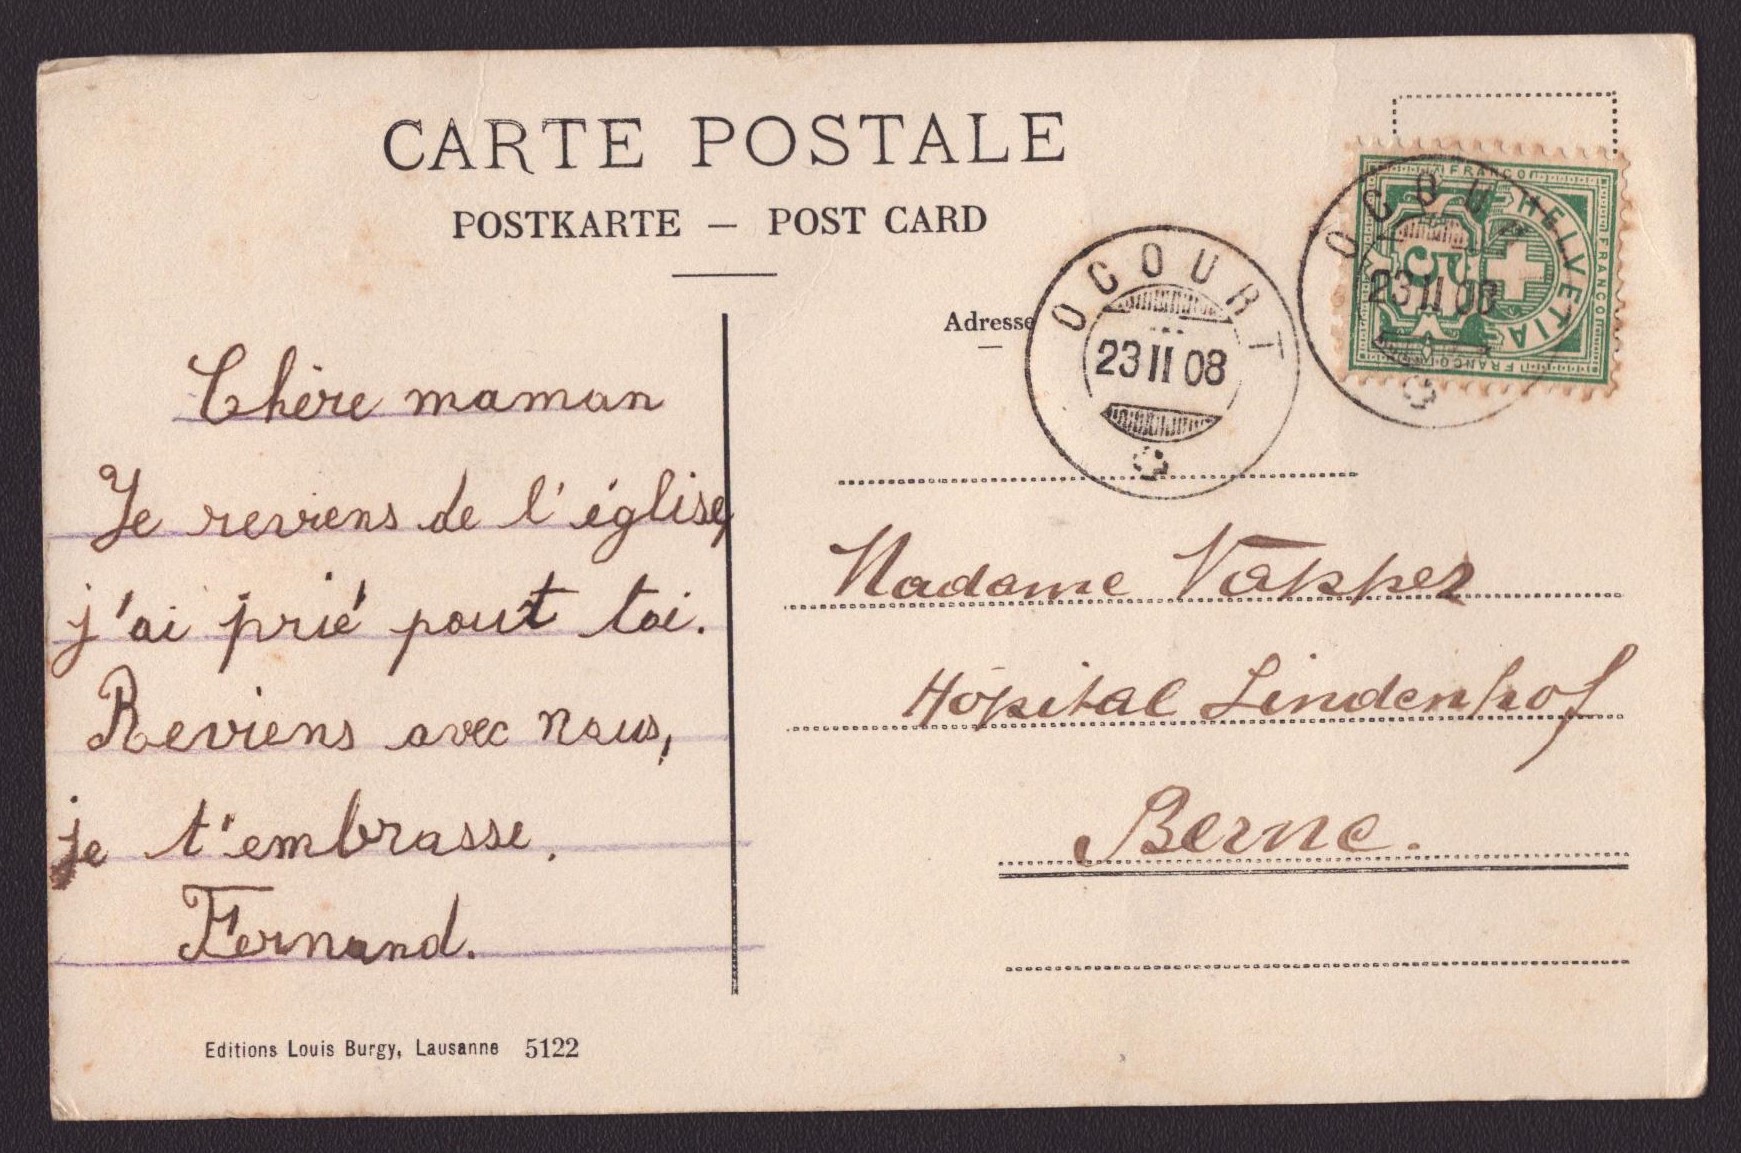 CARTE POSTALE
POSTKARTE — POST CARD
Adresse
OCOURT
23 II 08
OCOU
23 II 08
FRANCO
HELVETIA
FRANCO
FRANCO
5
Chère maman
Je reviens de l'église,
j'ai prié pour toi.
Reviens avec nous,
je t'embrasse.
Fernand.
Madame
Hôpital Lindenhof
Berne.
Editions Louis Burgy, Lausanne 5122